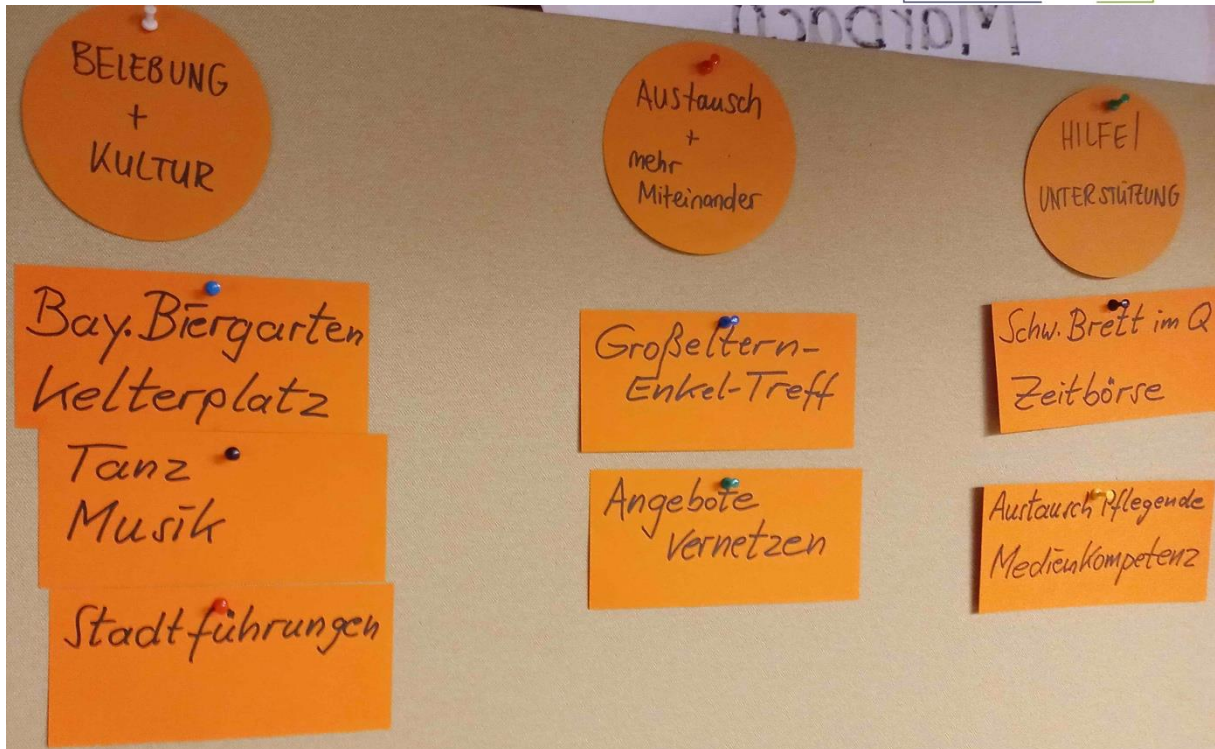 Marbach
BELEBUNG
+
KULTUR
Bay. Biergarten
Kelterplatz
Tanz
Musik
Stadtführungen
Austausch
+
mehr
Miteinander
Großeltern-
Enkel-Treff
Angebote
vernetzen
HILFE/
UNTERSTÜTZUNG
Schw. Brett im Q
Zeitbörse
Austausch Pflegende
Medienkompetenz